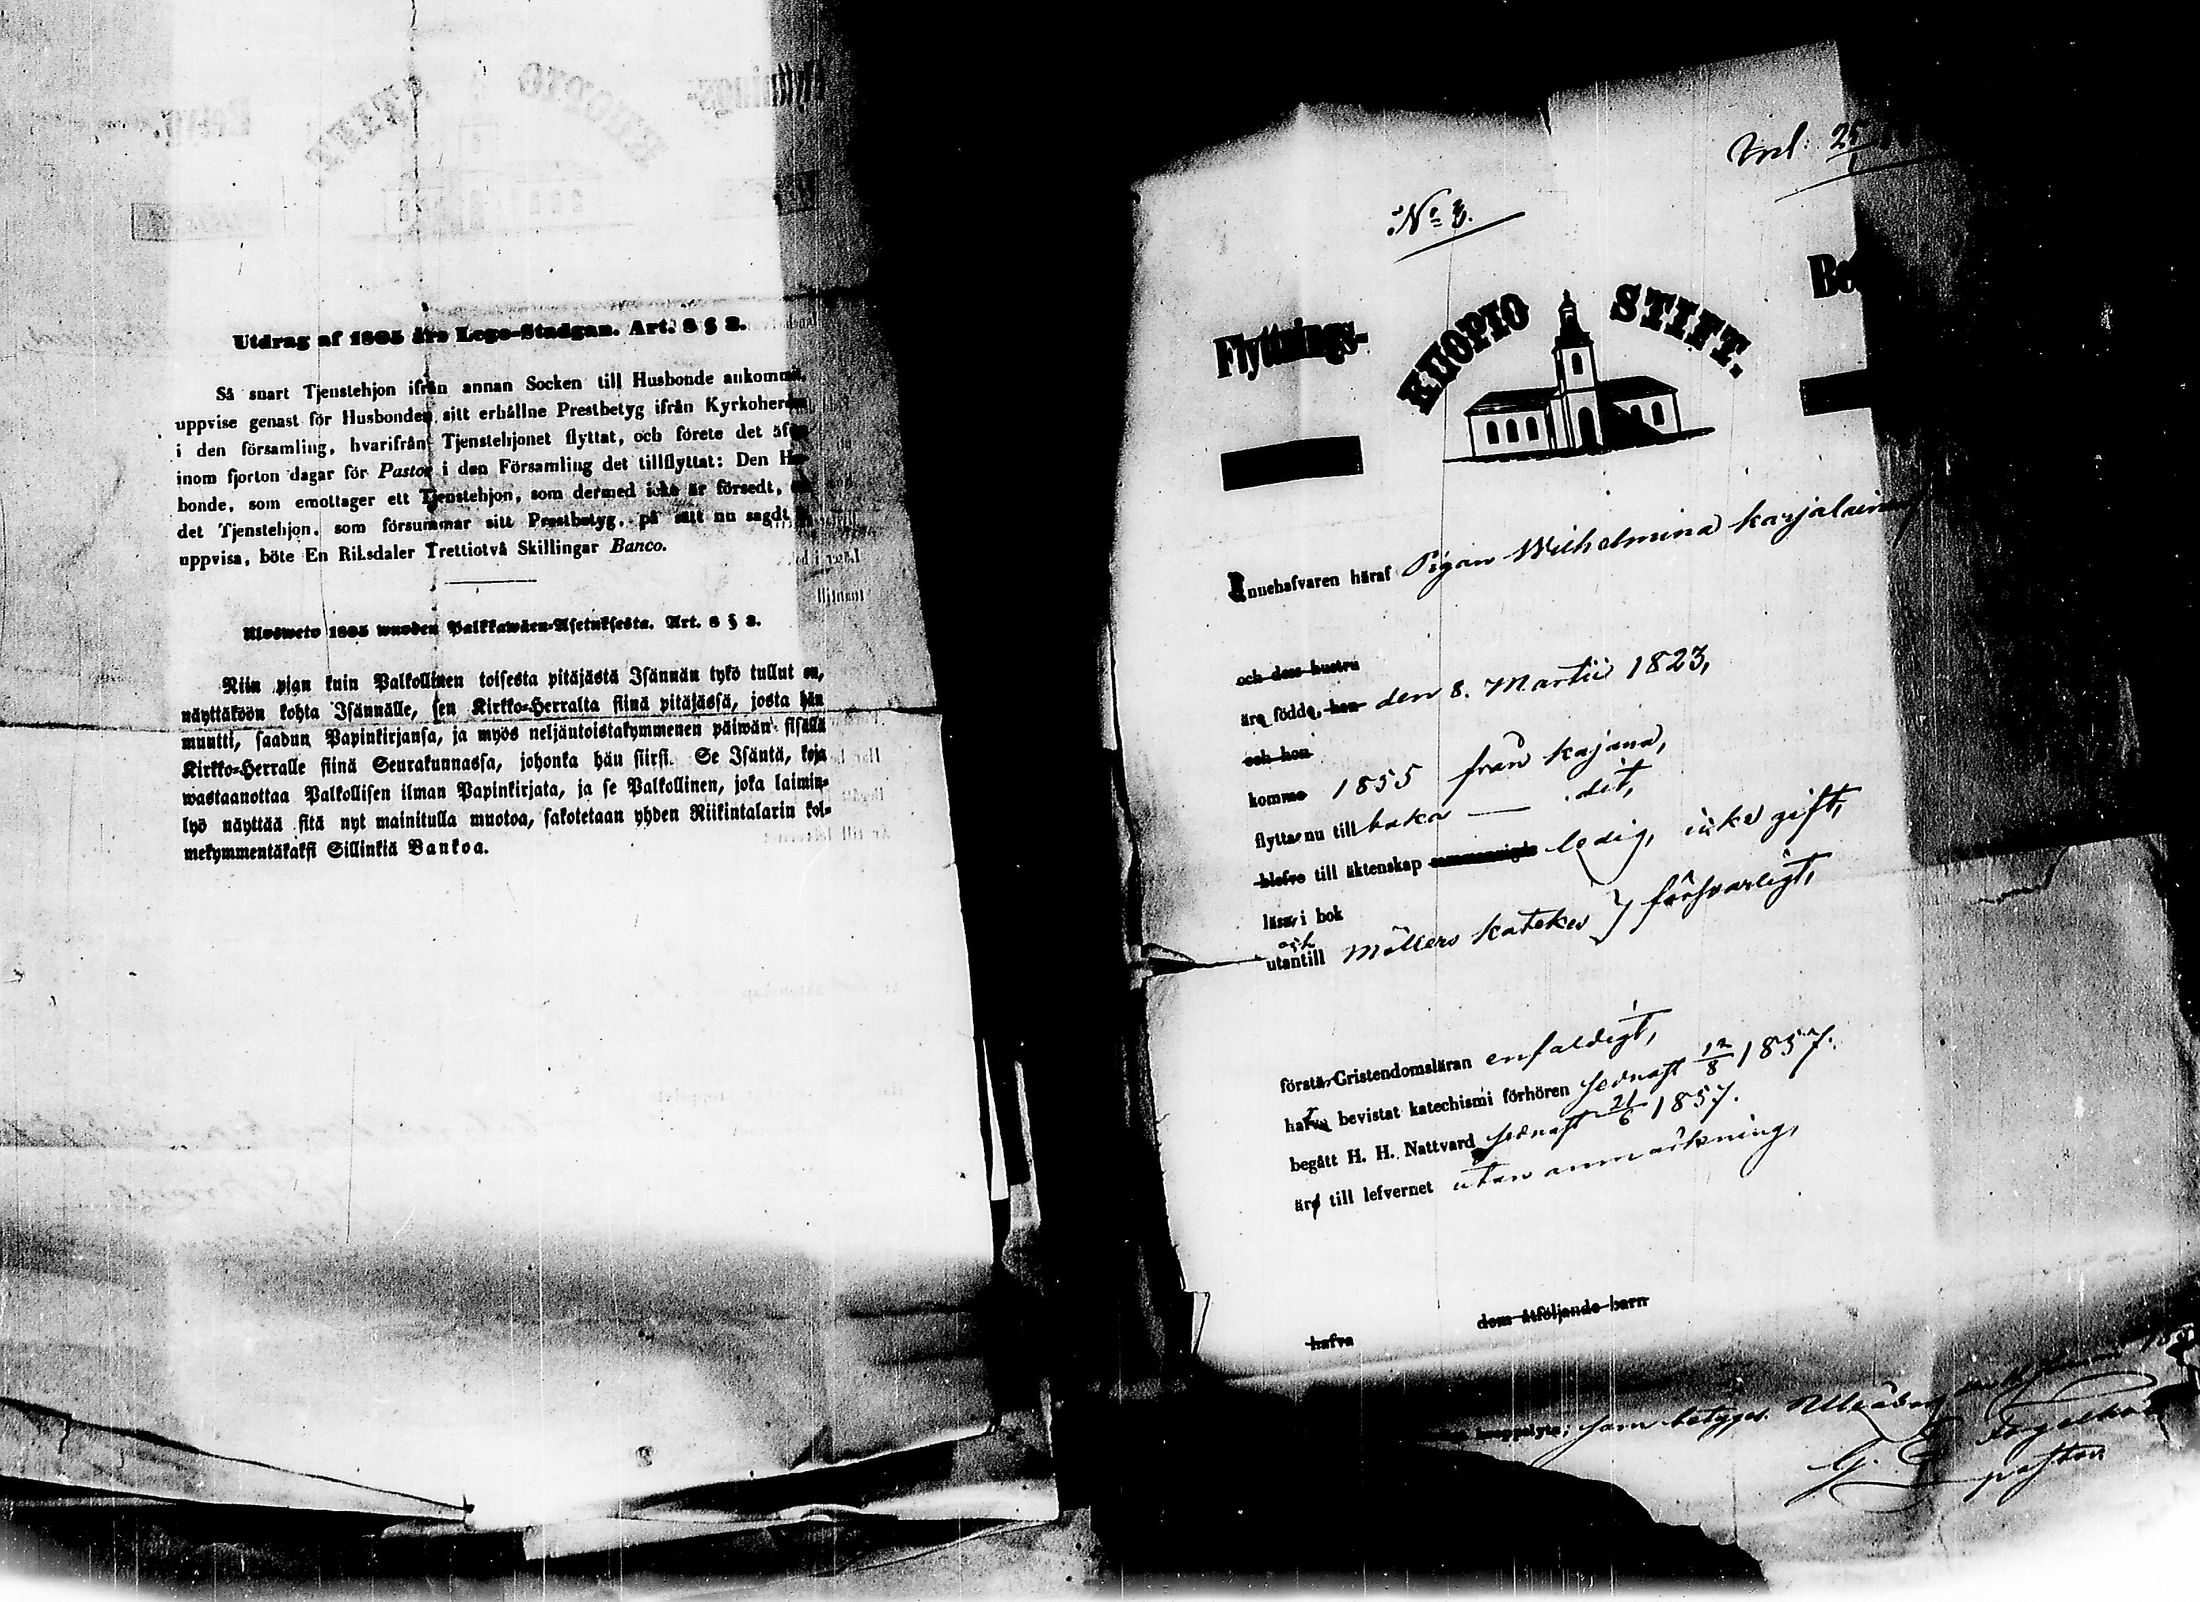 Utdrag af 1805 års Lego-Stadgan. Art. 8 § 2.
Så snart Tjenstehjon ifrån annan Socken till Husbonde ankommit,
uppvise genast för Husbonden sitt erhållne Prestbetyg ifrån
i den församling, hvarifrån Tjenstehjonet flyttat, och förete det
inom fjorton dagar för Pastor i den Församling det tillflyttat: Den
bonde, som emottager ett Tjenstehjon, som dermed icke är försedt,
det Tjenstehjon, som försummar sitt Prestbetyg, på sätt nu sagdt
uppvisa, böte En Riksdaler Trettiotvå Skillingar Banco.
Ulosweto 1805 wuoden Palkkawäen-Asetuksesta. Art. 8 § 2.
Niin pian kuin Palkollinen toisesta pitäjästä Isännän tykö tullut on,
näyttäköön kohta Isännälle, sen Kirkko-Herralta siinä pitäjässä, josta hän
muutti, saadun Papinkirjansa, ja myös neljäntoistakymmenen päiwän sisällä
Kirkko-Herralle siinä Seurakunnassa, johonka hän siirsi. Se Isäntä, koja
wastaanottaa Palkollisen ilman Papinkirjata, ja se Palkollinen, joka laimin-
lyö näyttää sitä nyt mainitulla muotoa, sakotetaan yhden Riikintalarin kol-
mekymmentäkaksi Sillinkiä Bankoa.
25
No 3.
Flyttnings-
KUOPIO STIFT.
Be
Innehafvaren häraf Pigan Wilhelmina Karjalainen
och dess hustru
äro födde, han den 8. Martii 1823,
och hon
komme 1855 från Kajana,
flytta nu till baka — dit,
blefve till äktenskap ledig, icke gift,
läsa i bok
och
utantill Möllers Katekes } försvarligt,
förstå Cristendomsläran enfaldigt,
hafva bevistat katechismi förhören sednast 12/8 1857.
begått H. H. Nattvard sednast 21/6 1857.
äro till lefvernet utan anmärkning,
hafva dem åtföljande barn
som betygar. Uleåborg
G. E.
pastor